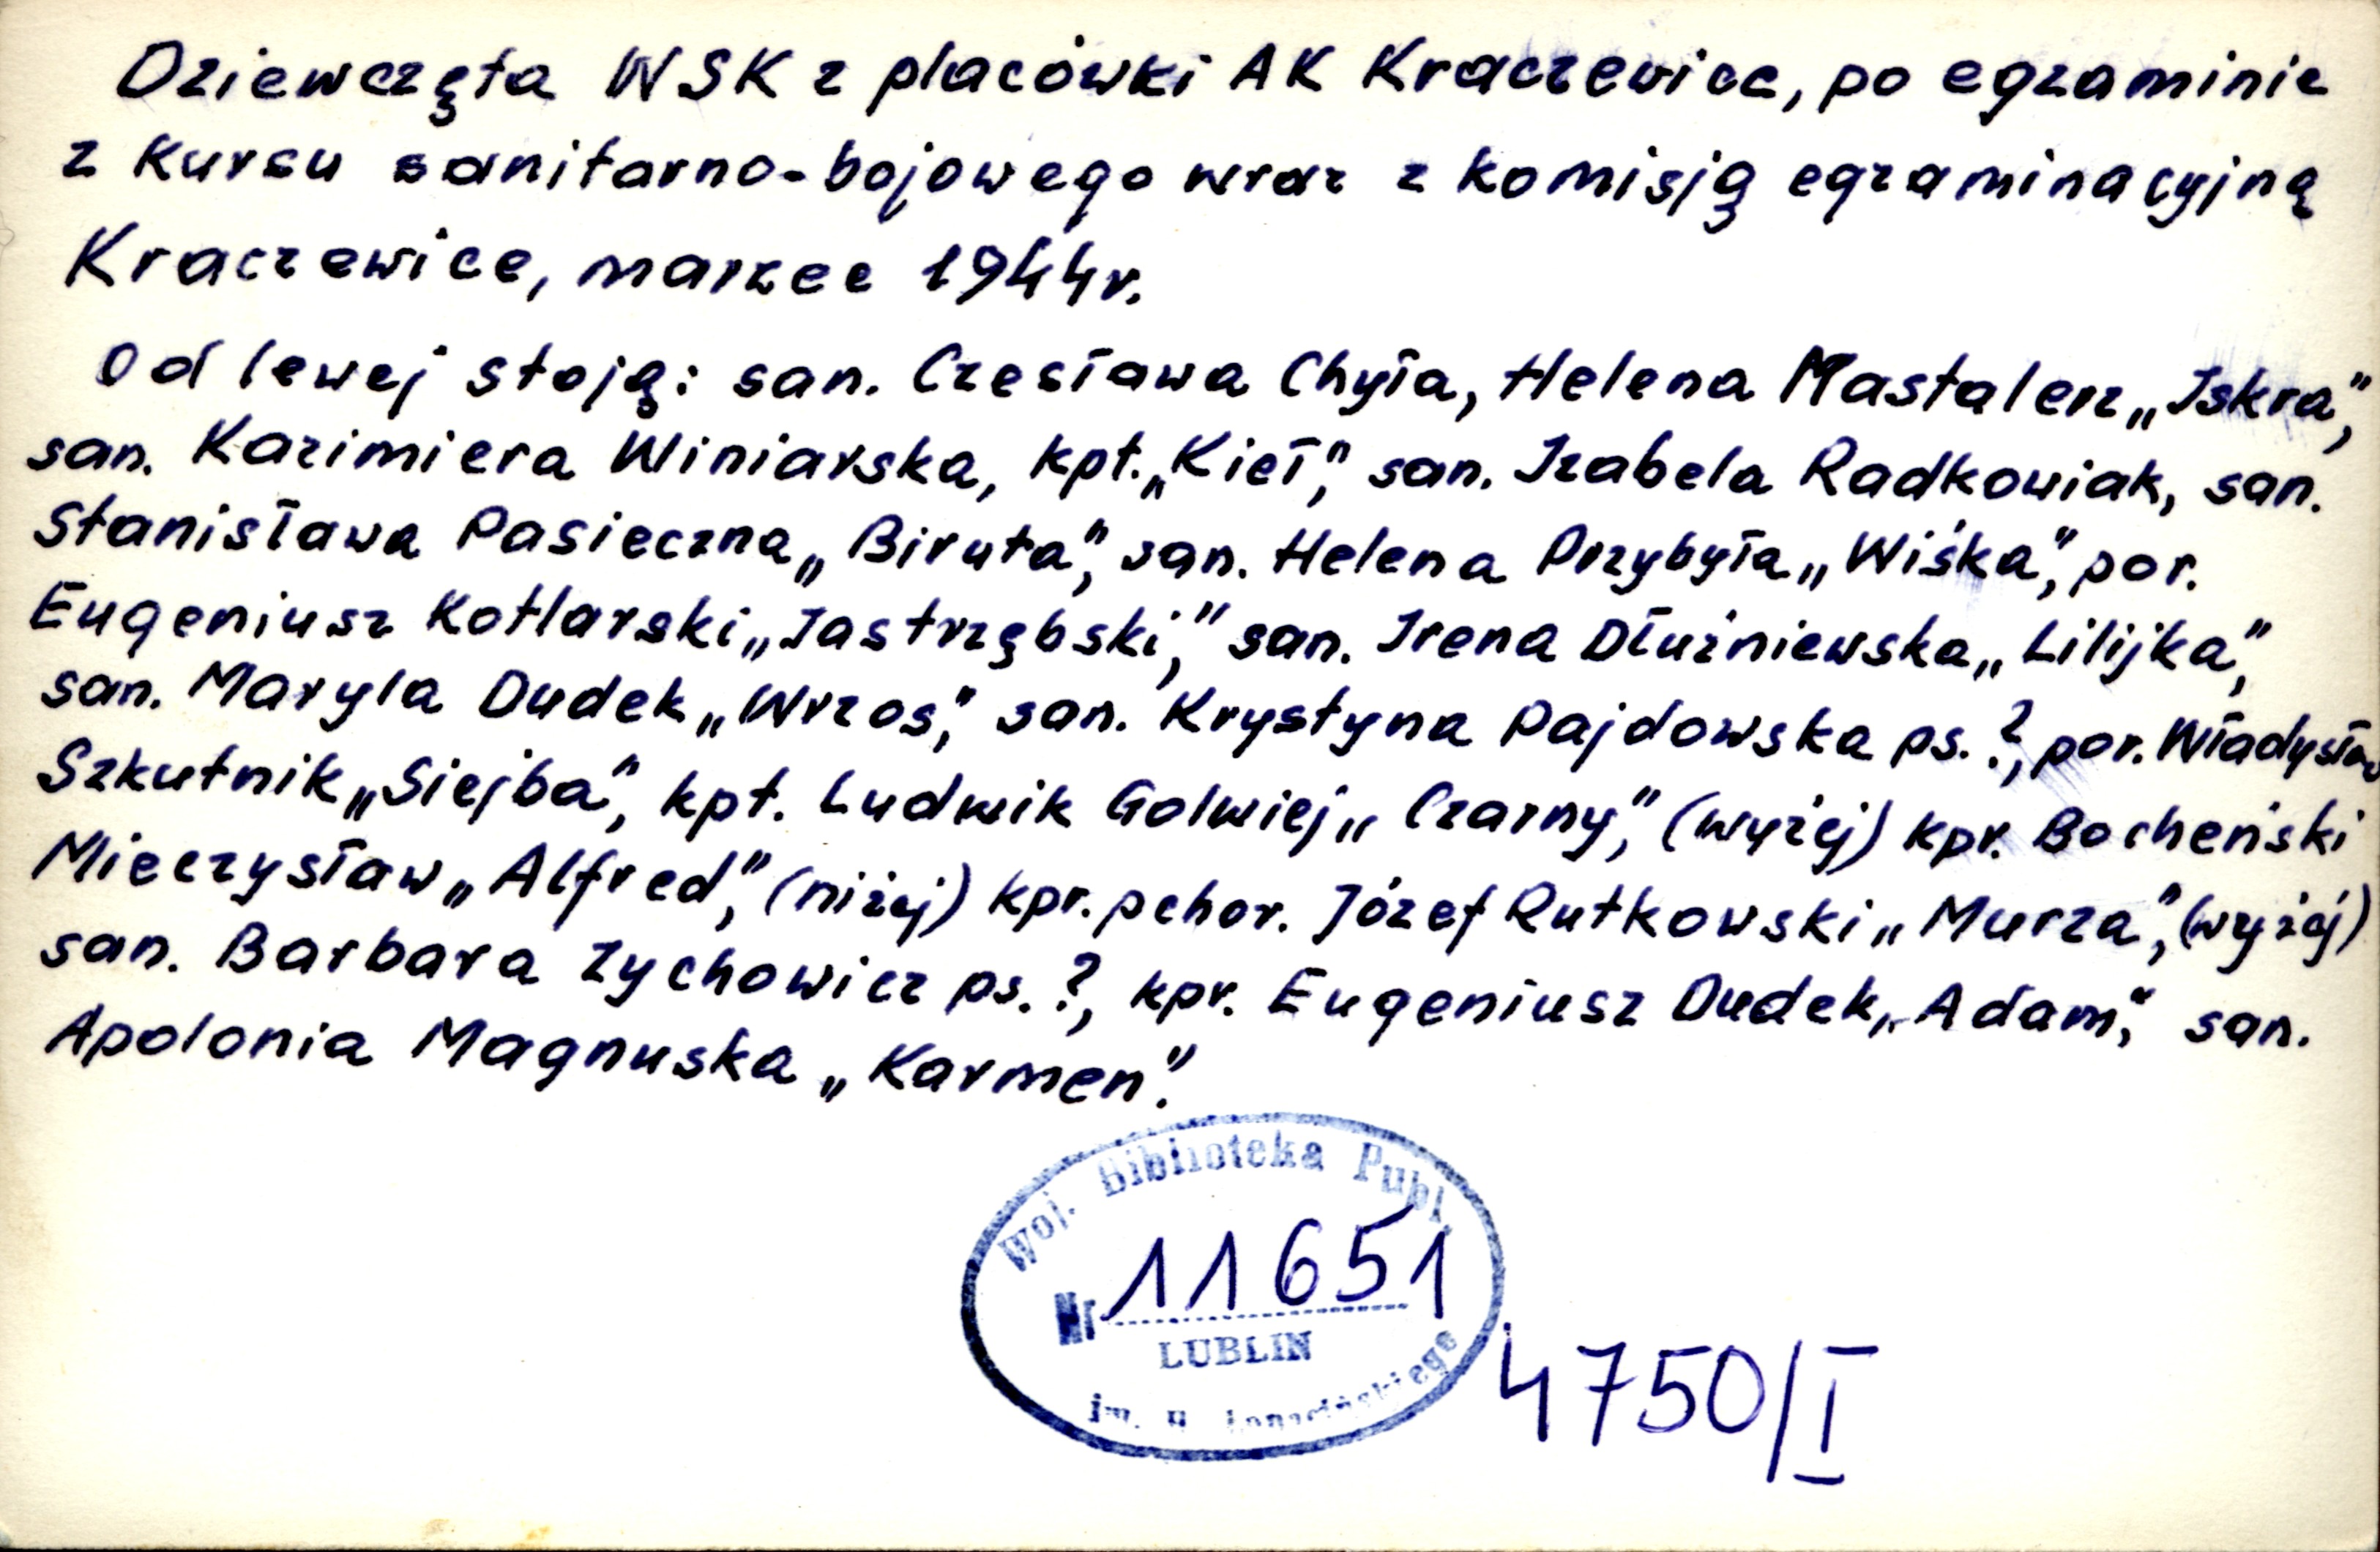 Dziewczęta WSK z placówki AK Kraczewice, po egzaminie
z kursu sanitarno-bojowego wraz z komisją egzaminacyjną
Kraczewice, marzec 1944r.
Od lewej stoją: san. Czesława Chyła, Helena Mastalerz „Iskra",
san. Kazimiera Winiarska, kpt. „Kieł", san. Izabela Radkowiak, san.
Stanisława Pasieczna „Biruta", san. Helena Przybyła „Wiśka", por.
Eugeniusz Kotlarski „Jastrzębski", san. Irena Dłużniewska „Lilijka",
san. Maryla Dudek „Wrzos", san. Krystyna Pajdowska ps. ?, por. Władysław
Szkutnik „Siejba", kpt. Ludwik Golwiej „Czarny", (wyżej) kpr. Bocheński
Mieczysław „Alfred", (niżej) kpr. pchor. Józef Rutkowski „Murza", (wyżej)
san. Barbara Zychowicz ps. ?, kpr. Eugeniusz Dudek „Adam", san.
Apolonia Magnuska „Karmen".
Woj. Biblioteka Publ.
Nr 11651
LUBLIN
im. H. Łopacińskiego
4750/I